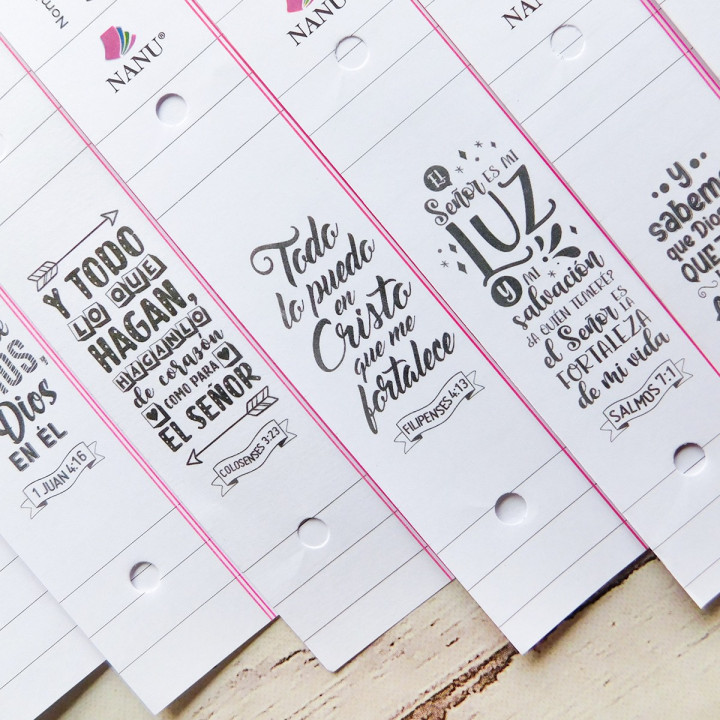 Dios
EN ÉL
1 JUAN 4:16
NANU®
Y TODO
LO QUE
HAGAN,
HAGANLO
de corazón
COMO PARA
EL SEÑOR
COLOSENSES 3:23
NANU®
Todo
lo puedo
en
Cristo
que me
fortalece
FILIPENSES 4:13
NANU®
EL
Señor ES MI
LUZ
Y MI
salvación
¿A QUIÉN TEMERÉ?
el Señor ES LA
FORTALEZA
de mi vida
SALMOS 7:1
Nom
..Y..
sabemo
que Dio
QUE